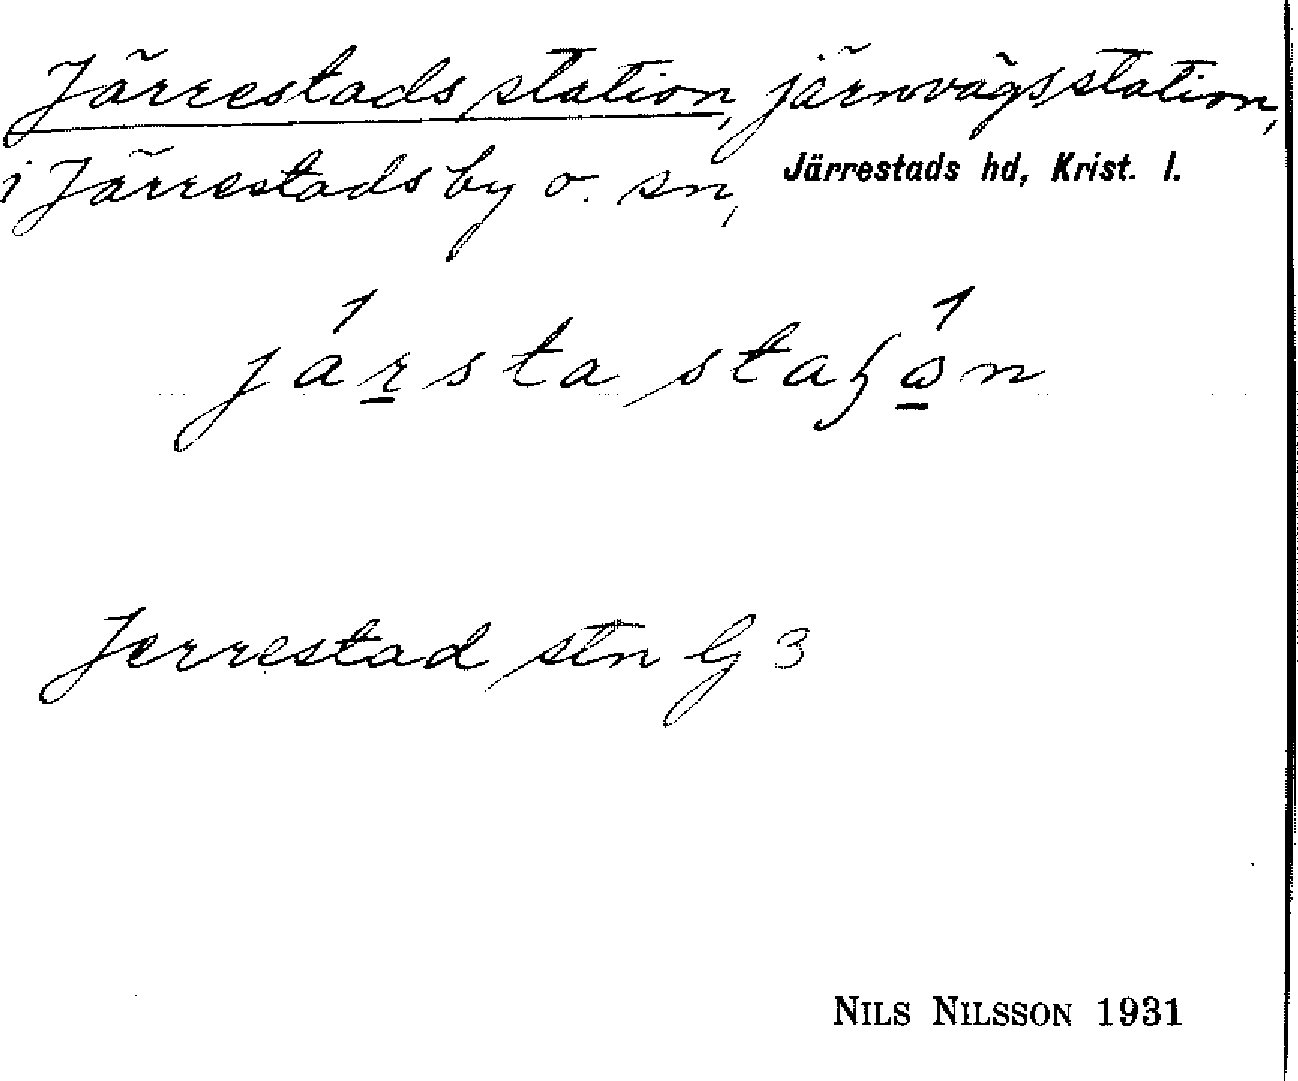 Järrestads station, järnvägsstation,
i Järrestads by o. sn, Järrestads hd, Krist. l.
Jerrestad stn G 3
NILS NILSSON 1931